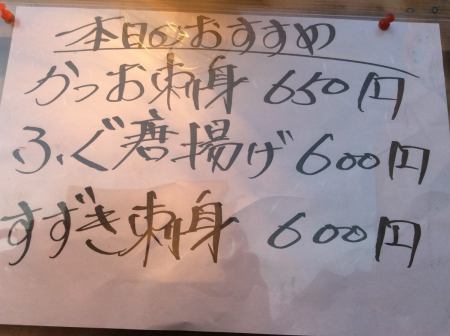 本日のおすすめ
かつお刺身 650円
ふぐ唐揚げ 600円
すずき刺身 600円